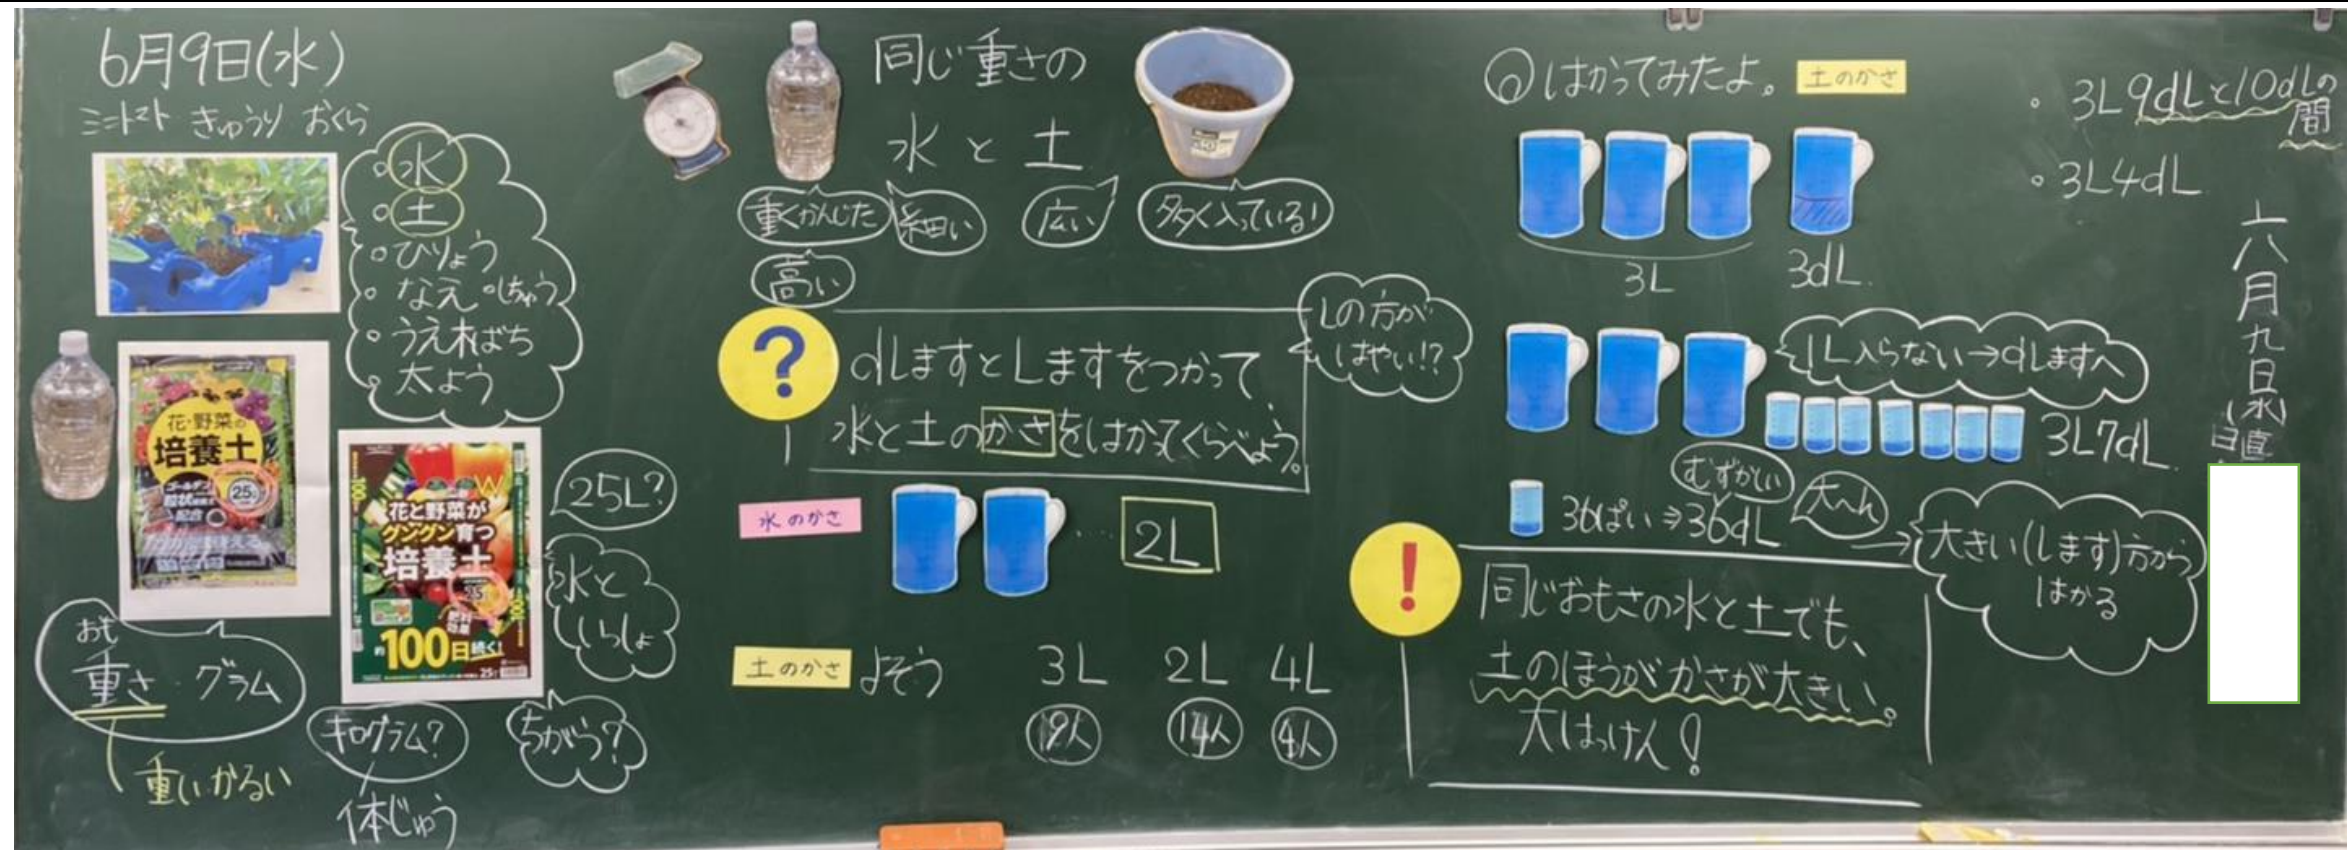 6月9日(水)
ミニトマト きゅうり おくら
水
土
ひりょう
なえ
しちゅう
うえ木ばち
太よう
花・野菜の
培養土
ゴールデン
粒状
配合
25
花と野菜が
グングン育つ
培養土
25
約100日続く!
25L?
水と
いっしょ
ちがう?
おも
重さ・グラム
キログラム?
体じゅう
重い・かるい
同じ重さの
水と土
重くかんじた
細い
広い
多く入っている!
高い
?
dLますとLますをつかって
水と土のかさをはかってくらべよう。
Lの方が
はやい!?
水のかさ
2L
土のかさ
よそう
3L 2L 4L
9人 14人 4人
はかってみたよ。
土のかさ
3L
3dL
1L入らない→dLますへ
3L7dL
36ぱい⇒36dL
むずかしい
大へん
大きい(Lます)方から
はかる
!
同じおもさの水と土でも、
土のほうがかさが大きい。
大はっけん!
・3L9dLと10dLの
間
・3L4dL
六月九日(水)
日直